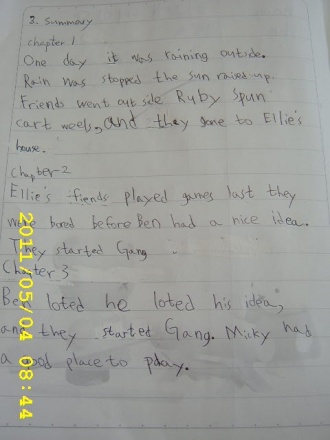 3. Summary
chapter 1
One day it was raining outside.
Rain was stopped the sun raised up.
Friends went out side Ruby spun
cart weels, and they gone to Ellie's
house.
Chapter 2
Ellie's fiends played games last they
were bored before Ben had a nice idea.
They started Gang
Chapter 3
Ben loted he loted his idea,
and they started Gang. Micky had
a good place to pday.
2011/05/04 08:44